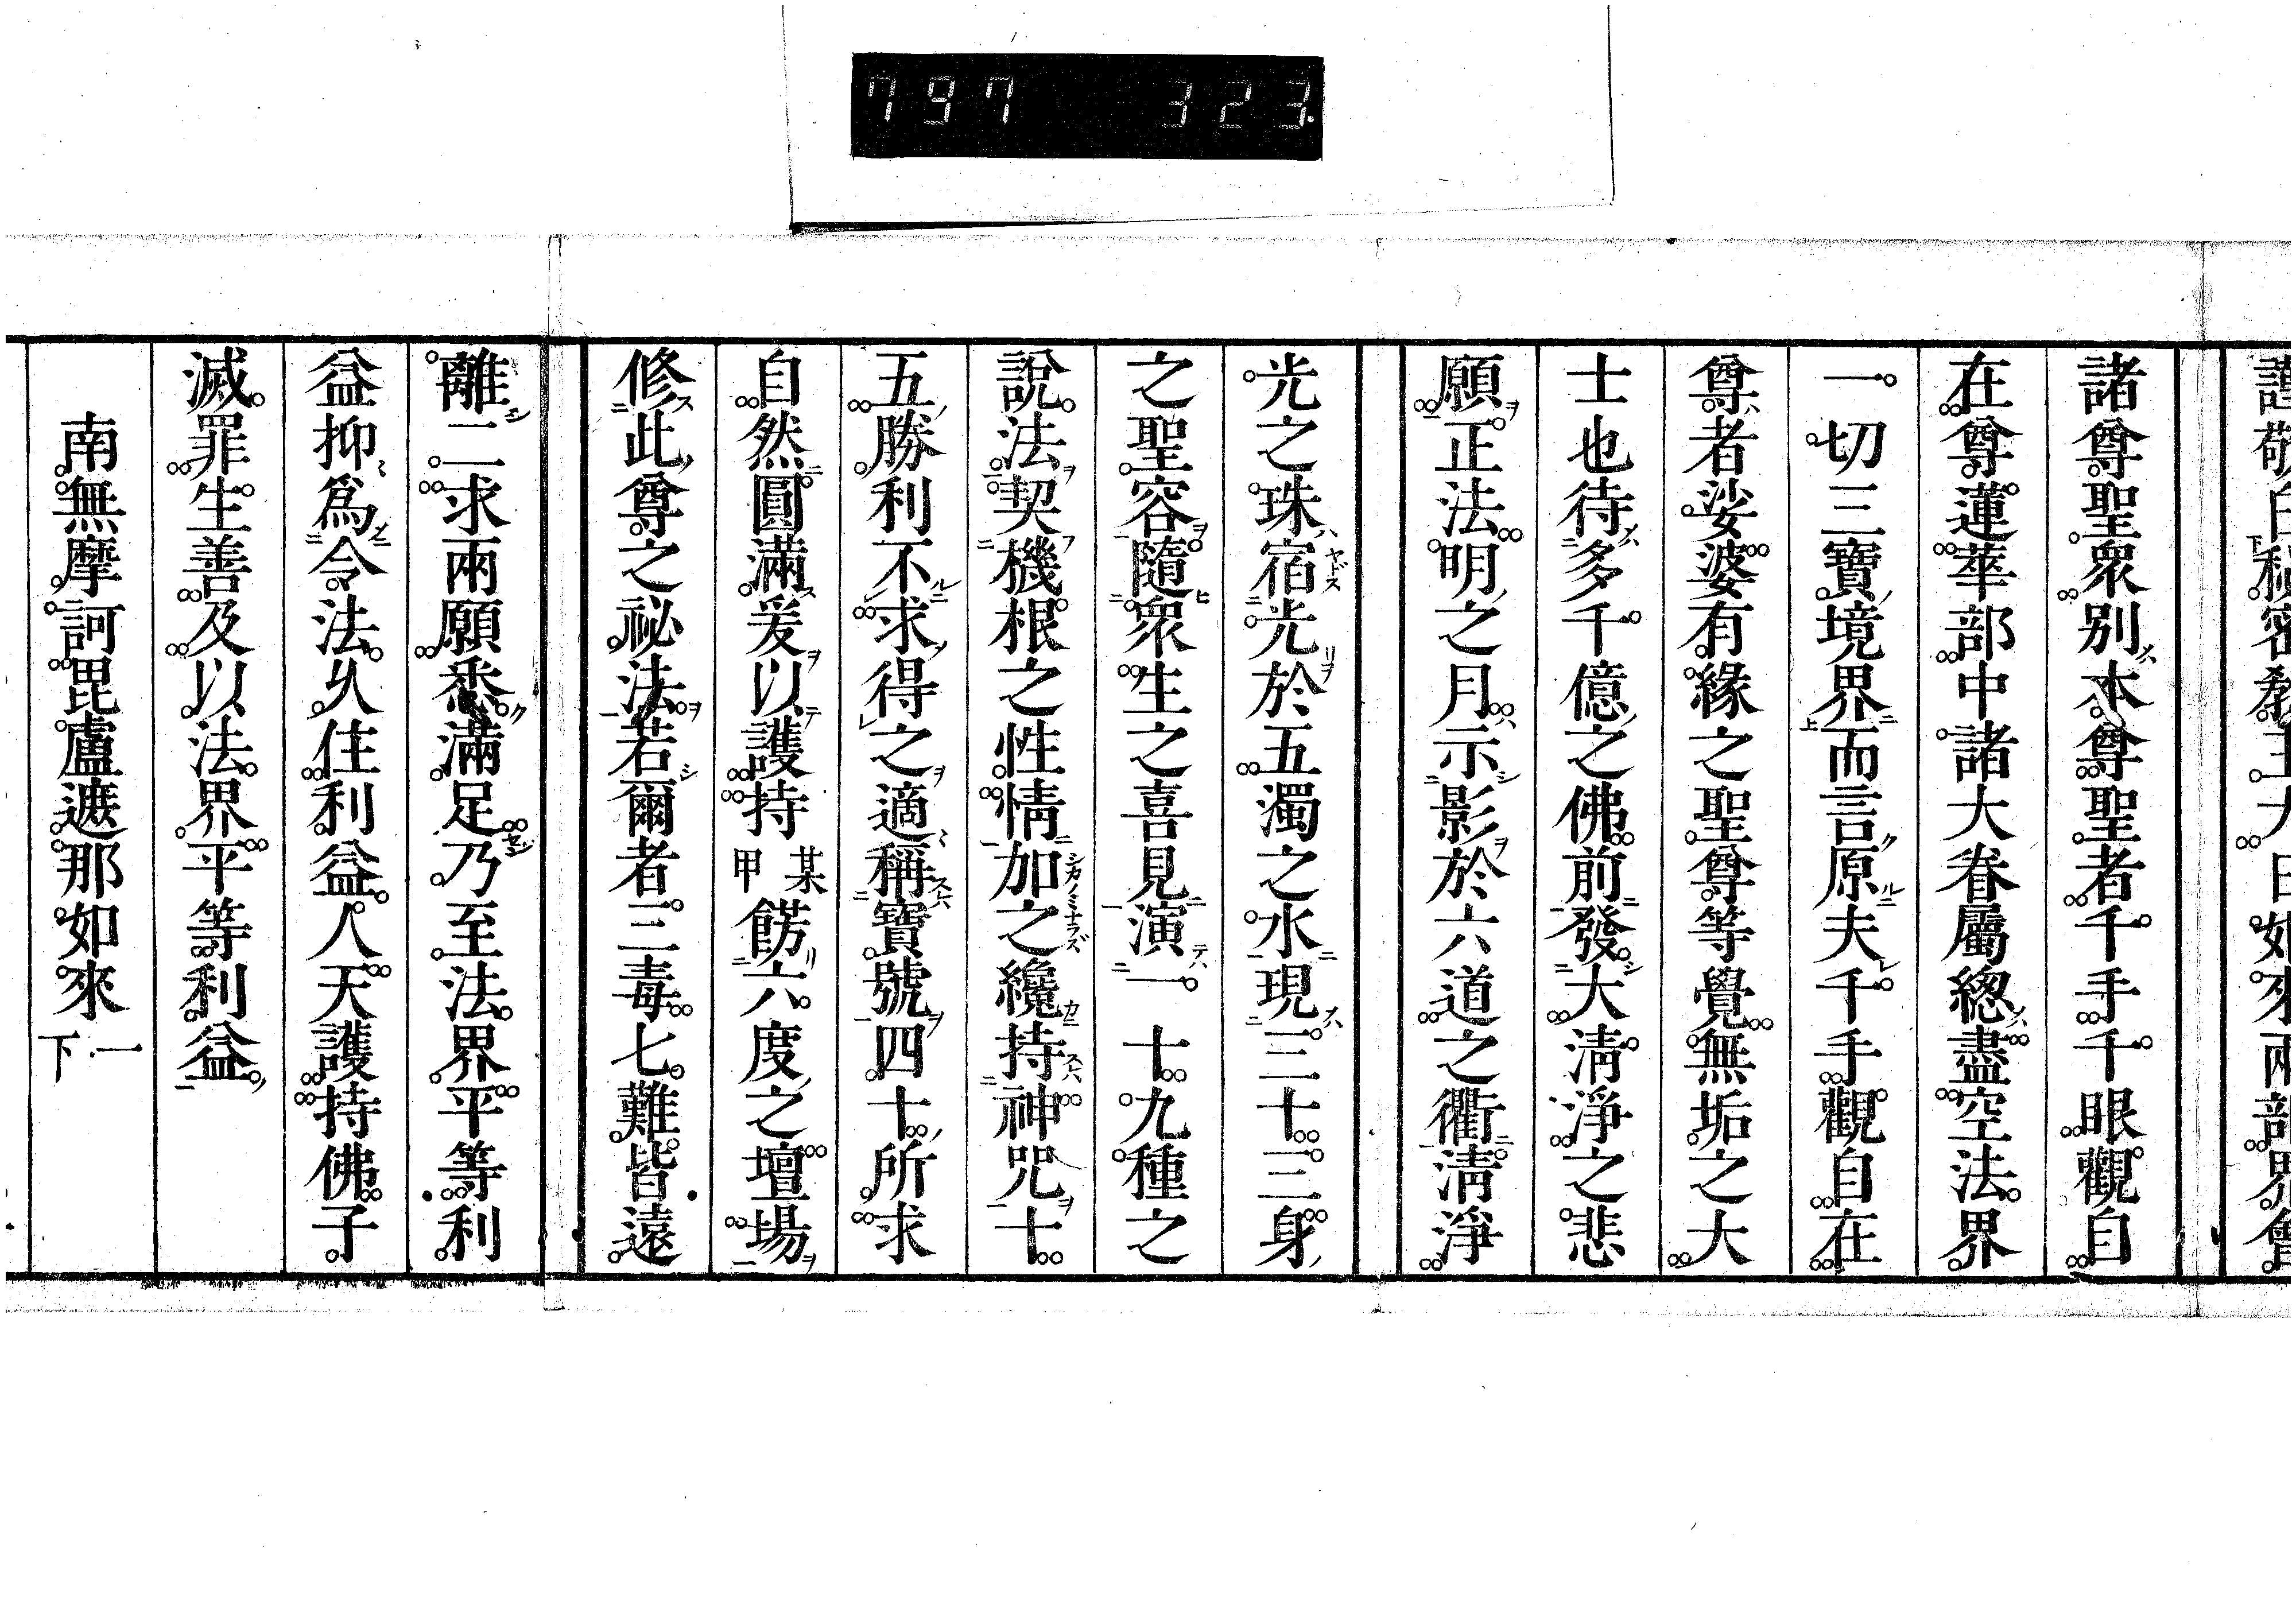 797 323
謹敬白秘密教主大日如來兩部界會
諸尊聖衆別本尊聖者千手千眼觀自
在尊蓮華部中諸大眷屬總盡空法界
一切三寶境界而言原夫千手觀自在
尊者娑婆有緣之聖尊等覺無垢之大
士也待多千億之佛前發大淸淨之悲
願正法明之月示影於六道之衢淸淨
光之珠宿光於五濁之水現三十三身
之聖容隨衆生之喜見演一十九種之
說法契機根之性情加之纔持神咒十
五勝利不求得之適稱寶號四十所求
自然圓滿爰以護持某甲餝六度之壇場
修此尊之祕法若爾者三毒七難皆遠
離二求兩願悉滿足乃至法界平等利
益抑爲令法久住利益人天護持佛子
滅罪生善及以法界平等利益
南無摩訶毘盧遮那如來 一下